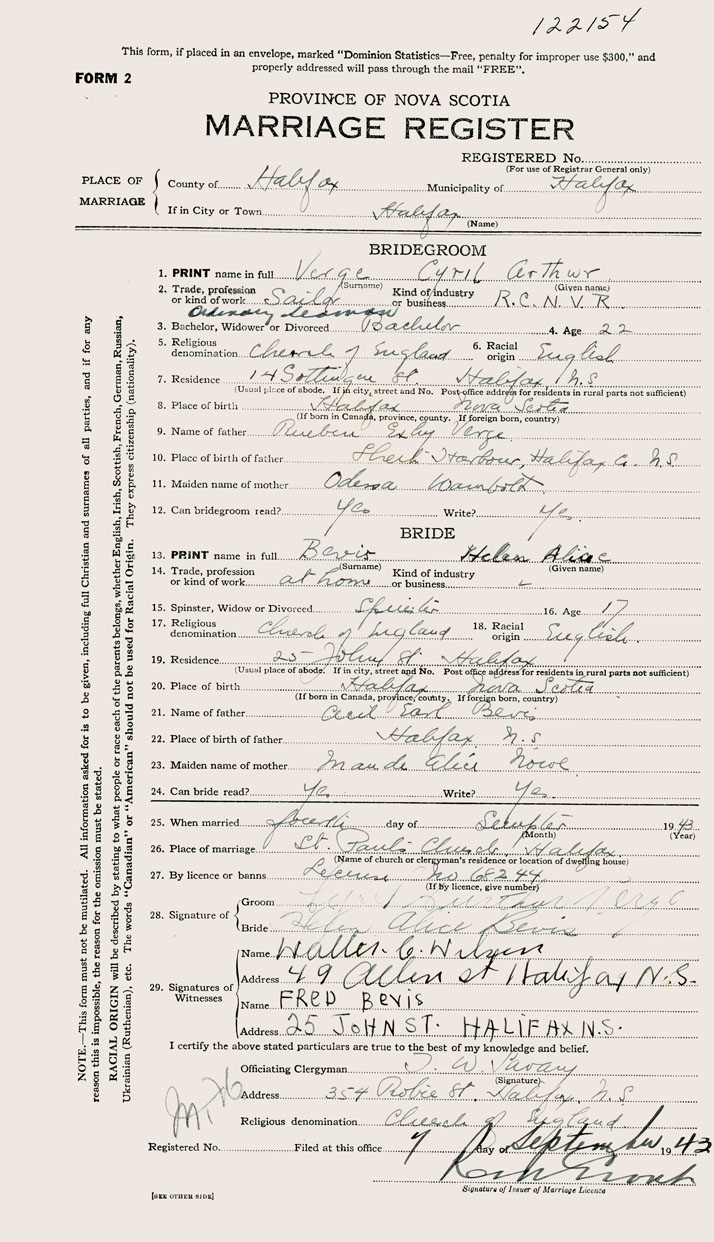 122154
This form, if placed in an envelope, marked "Dominion Statistics—Free, penalty for improper use $300," and
properly addressed will pass through the mail "FREE".
FORM 2
PROVINCE OF NOVA SCOTIA
MARRIAGE REGISTER
REGISTERED No.
(For use of Registrar General only)
PLACE OF MARRIAGE
County of Halifax Municipality of Halifax
If in City or Town Halifax
(Name)
BRIDEGROOM
1. PRINT name in full Verge Cyril Arthur
(Surname) (Given name)
2. Trade, profession or kind of work Sailor Kind of industry or business R.C.N.V.R
Ordinary Seaman
3. Bachelor, Widower or Divorced Bachelor 4. Age 22
5. Religious denomination Church of England 6. Racial origin English
7. Residence 14 Gottingen St. Halifax, N.S
(Usual place of abode. If in city, street and No. Post office address for residents in rural parts not sufficient)
8. Place of birth Halifax Nova Scotia
(If born in Canada, province, county. If foreign born, country)
9. Name of father Rueben Verge
10. Place of birth of father Harbour, Halifax Co. N.S.
11. Maiden name of mother Odessa Wambolt
12. Can bridegroom read? Yes Write? Yes.
BRIDE
13. PRINT name in full Bevis Helen Alice
(Surname) (Given name)
14. Trade, profession or kind of work at home Kind of industry or business -
15. Spinster, Widow or Divorced Spinster 16. Age 17
17. Religious denomination Church of England 18. Racial origin English.
19. Residence 25 John St Halifax
(Usual place of abode. If in city, street and No. Post office address for residents in rural parts not sufficient)
20. Place of birth Halifax Nova Scotia
(If born in Canada, province, county. If foreign born, country)
21. Name of father Cecil Earl Bevis
22. Place of birth of father Halifax N.S
23. Maiden name of mother Maude Alice
24. Can bride read? Yes Write? Yes.
25. When married fourth day of 1943
(Month) (Year)
26. Place of marriage St. Paul's Church, Halifax
(Name of church or clergyman's residence or location of dwelling house)
27. By licence or banns License No 68244
(If by licence, give number)
28. Signature of
Groom Arthur Verge
Bride Helen Alice Bevis
29. Signatures of Witnesses
Name Walter C. Wilson
Address 49 Allen St Halifax N.S.
Name FRED BEVIS
Address 25 JOHN ST. HALIFAX N.S.
I certify the above stated particulars are true to the best of my knowledge and belief.
Officiating Clergyman T. W. Savary
(Signature)
Address 354 Robie St., Halifax, N.S
Religious denomination Church of England
Registered No. Filed at this office 7 day of September 1943
Signature of Issuer of Marriage Licence
[SEE OTHER SIDE]
NOTE.—This form must not be mutilated. All information asked for is to be given, including full Christian and surnames of all parties, and if for any
reason this is impossible, the reason for the omission must be stated.
RACIAL ORIGIN will be described by stating to what people or race each of the parents belongs, whether English, Irish, Scottish, French, German, Russian,
Ukrainian (Ruthenian), etc. The words "Canadian" or "American" should not be used for Racial Origin. They express citizenship (nationality).